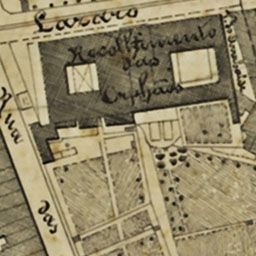 Lazaro
Recolhimento
das
Orphãos
Rua
das